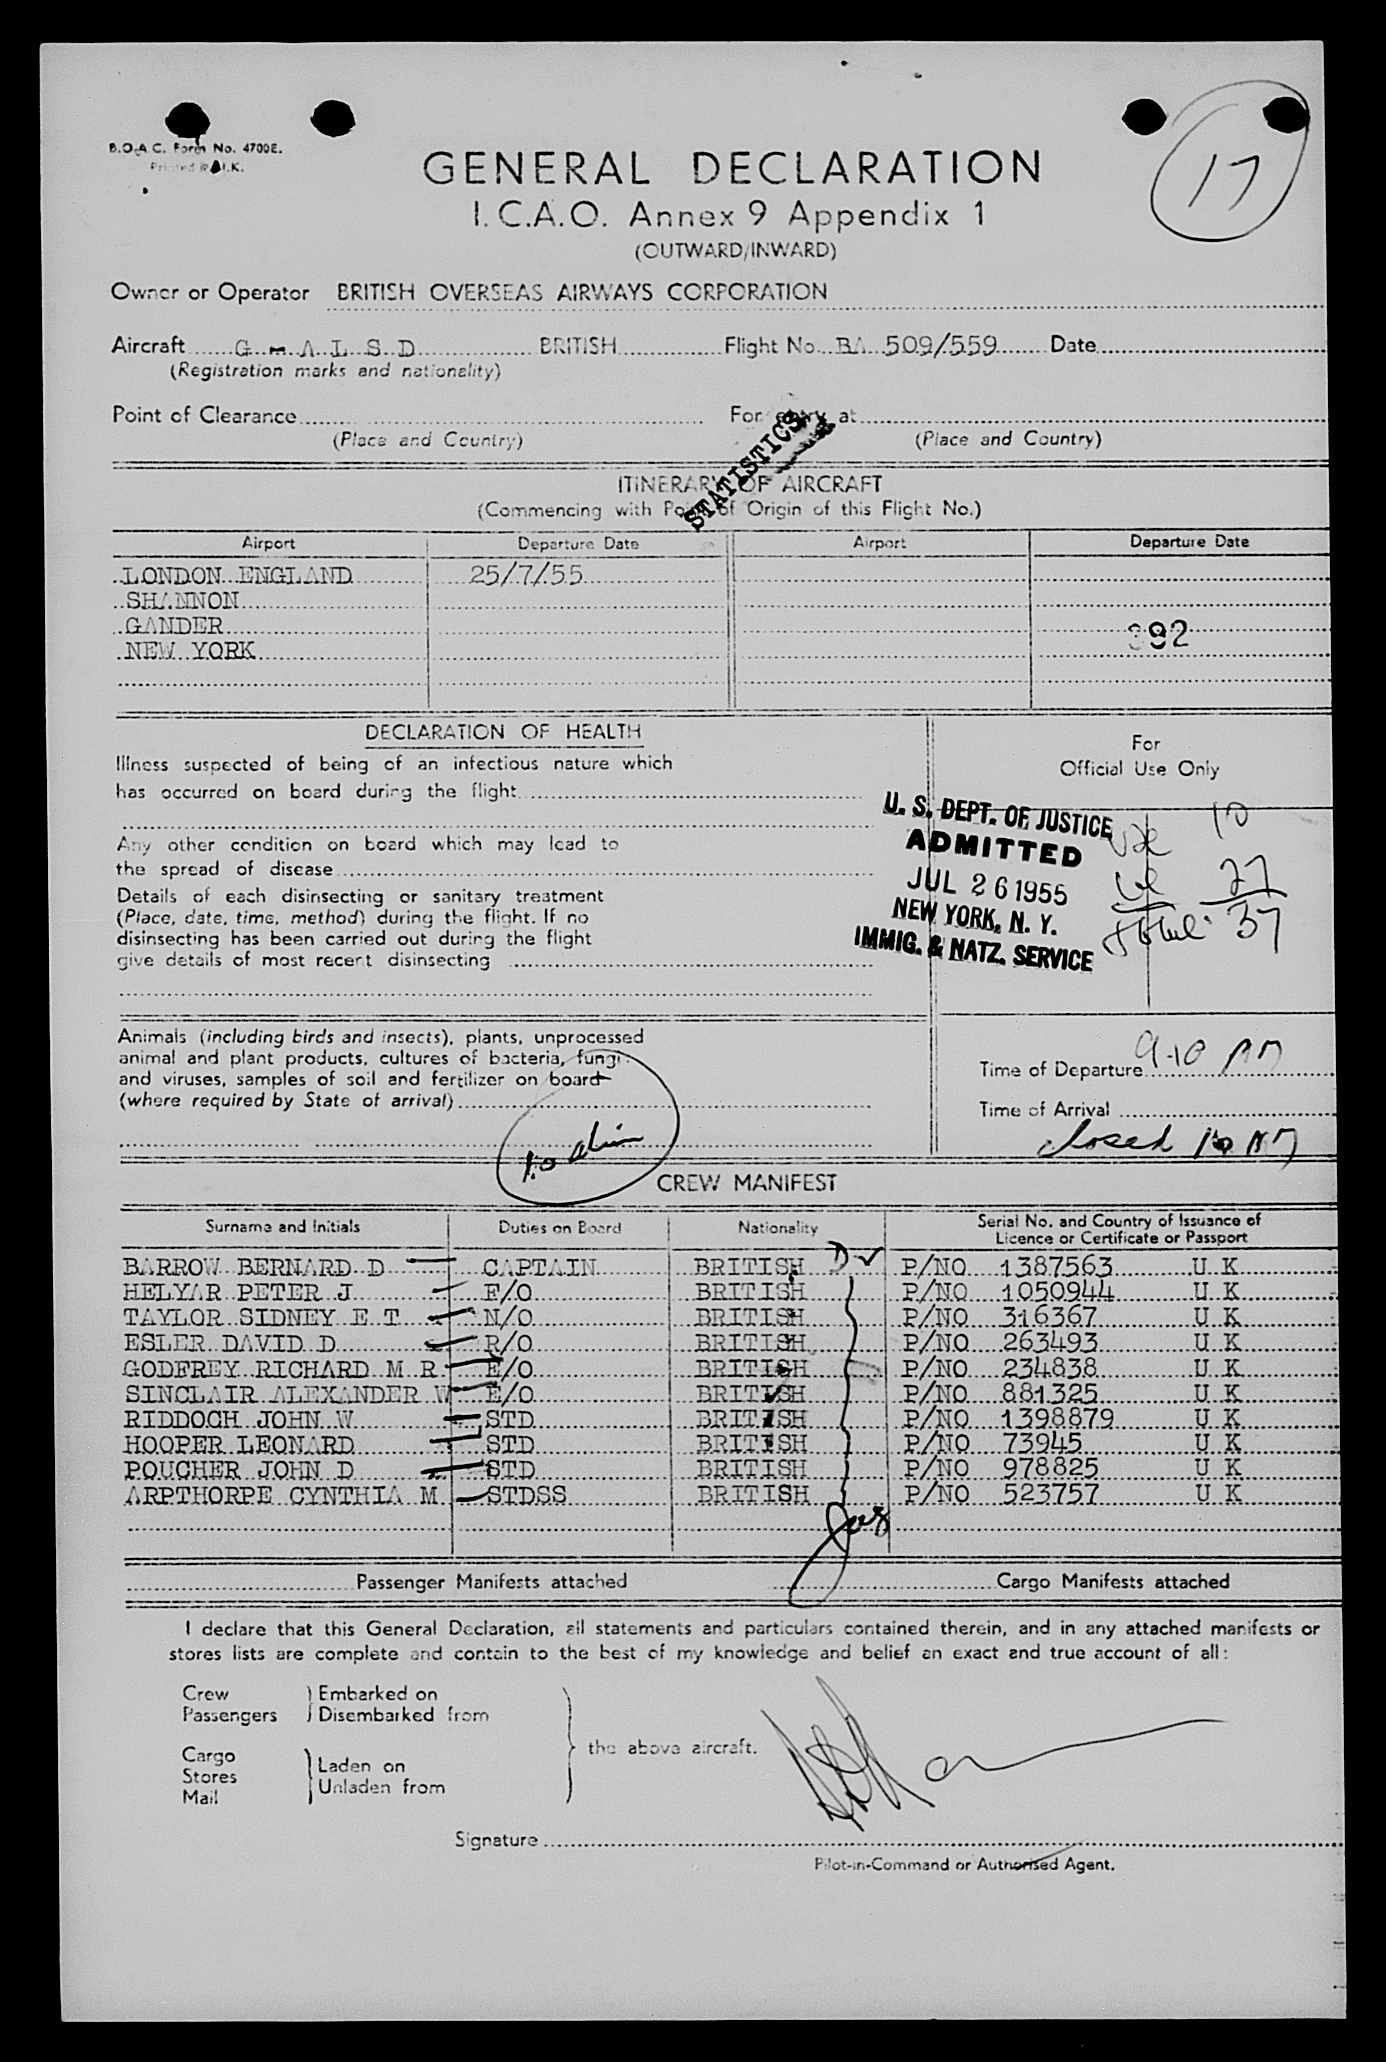 B.O.A.C. Form No. 4700E.
Printed in U.K.
17
GENERAL DECLARATION
I.C.A.O. Annex 9 Appendix 1
(OUTWARD/INWARD)
Owner or Operator BRITISH OVERSEAS AIRWAYS CORPORATION
Aircraft G - A L S D BRITISH Flight No. BA 509/559 Date
(Registration marks and nationality)
Point of Clearance For entry at
(Place and Country) (Place and Country)
STATISTICS
ITINERARY OF AIRCRAFT
(Commencing with Point of Origin of this Flight No.)
Airport Departure Date Airport Departure Date
LONDON ENGLAND 25/7/55
SHANNON
GANDER 392
NEW YORK
DECLARATION OF HEALTH
For
Official Use Only
Illness suspected of being of an infectious nature which
has occurred on board during the flight
Any other condition on board which may lead to
the spread of disease
Details of each disinsecting or sanitary treatment
(Place, date, time, method) during the flight. If no
disinsecting has been carried out during the flight
give details of most recent disinsecting
U. S. DEPT. OF JUSTICE
ADMITTED
JUL 26 1955
NEW YORK, N. Y.
IMMIG. & NATZ. SERVICE
10
27
Total 37
Animals (including birds and insects), plants, unprocessed
animal and plant products, cultures of bacteria, fungi
and viruses, samples of soil and fertilizer on board
(where required by State of arrival)
Time of Departure 9.10 AM
Time of Arrival
Closed 10 AM
CREW MANIFEST
Surname and Initials Duties on Board Nationality Serial No. and Country of Issuance of
Licence or Certificate or Passport
BARROW BERNARD D CAPTAIN BRITISH P/NO 1387563 U K
HELYAR PETER J F/O BRITISH P/NO 1050944 U K
TAYLOR SIDNEY E T N/O BRITISH P/NO 316367 U K
ESLER DAVID D R/O BRITISH P/NO 263493 U K
GODFREY RICHARD M R E/O BRITISH P/NO 234838 U K
SINCLAIR ALEXANDER W E/O BRITISH P/NO 881325 U K
RIDDOCH JOHN W STD BRITISH P/NO 1398879 U K
HOOPER LEONARD STD BRITISH P/NO 73945 U K
POUCHER JOHN D STD BRITISH P/NO 978825 U K
ARPTHORPE CYNTHIA M STDSS BRITISH P/NO 523757 U K
Passenger Manifests attached Cargo Manifests attached
I declare that this General Declaration, all statements and particulars contained therein, and in any attached manifests or
stores lists are complete and contain to the best of my knowledge and belief an exact and true account of all:
Crew Embarked on
Passengers Disembarked from
the above aircraft.
Cargo Laden on
Stores
Unladen from
Mail
Signature
Pilot-in-Command or Authorised Agent.